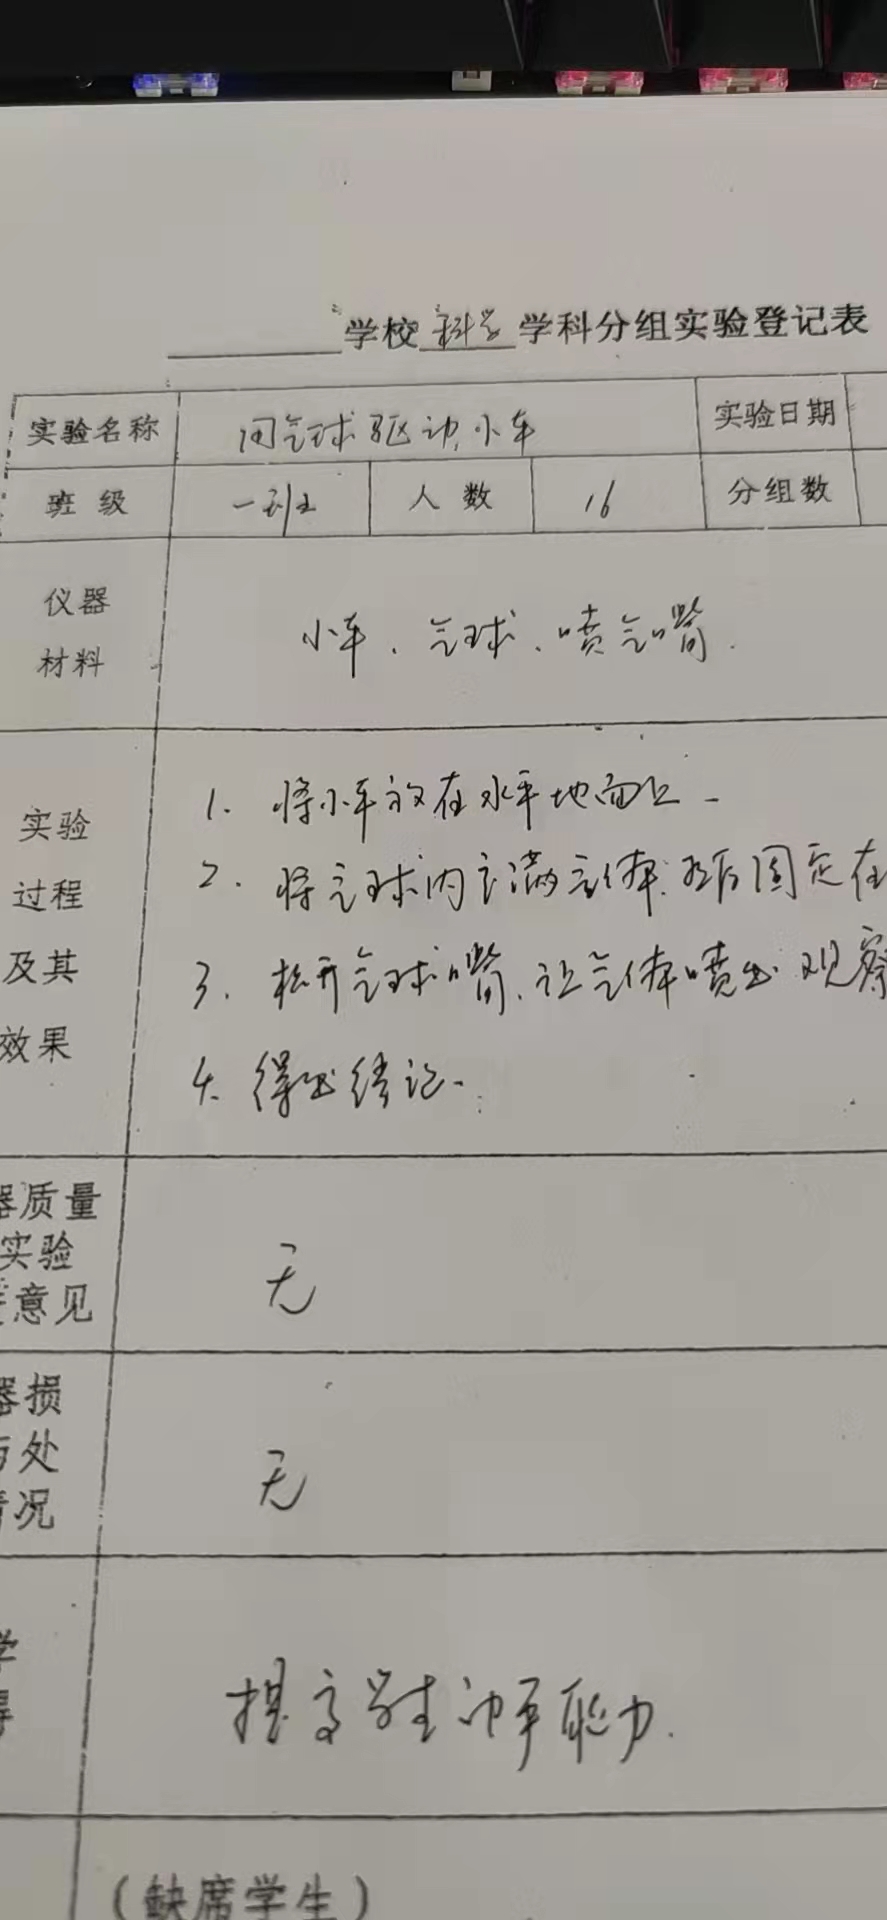 学校 科学 学科分组实验登记表
实验名称 用气球驱动小车 实验日期
班 级 一班 人 数 16 分组数
仪器
材料
小车、气球、喷气嘴.
实验
过程
及其
效果
1. 将小车放在水平地面上.
2. 将气球内充满气体.然后固定在
3. 松开气球嘴,让气体喷出 观察
4. 得出结论.
器质量
实验
意见
无
器损
与处
情况
无
学
得
提高学生动手能力.
(缺席学生)